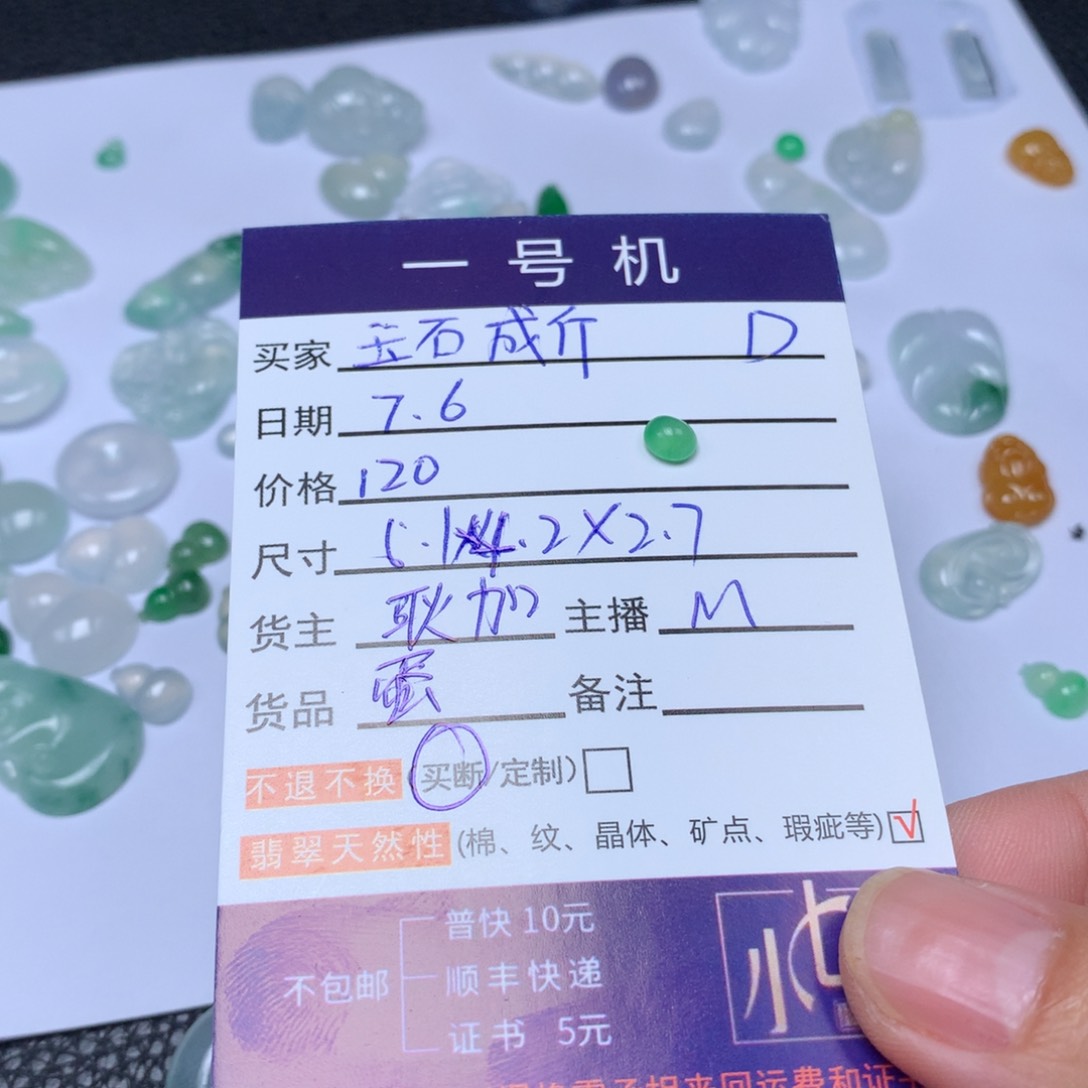 一号机
买家 玉石成斤 D
日期 7.6
价格 120
尺寸 5.1×4.2×2.7
货主 耿加 主播 M
货品 蛋 备注
不退不换 (买断/定制)
翡翠天然性 (棉、纹、晶体、矿点、瑕疵等) √
不包邮
普快 10元
顺丰快递
证书 5元
小七